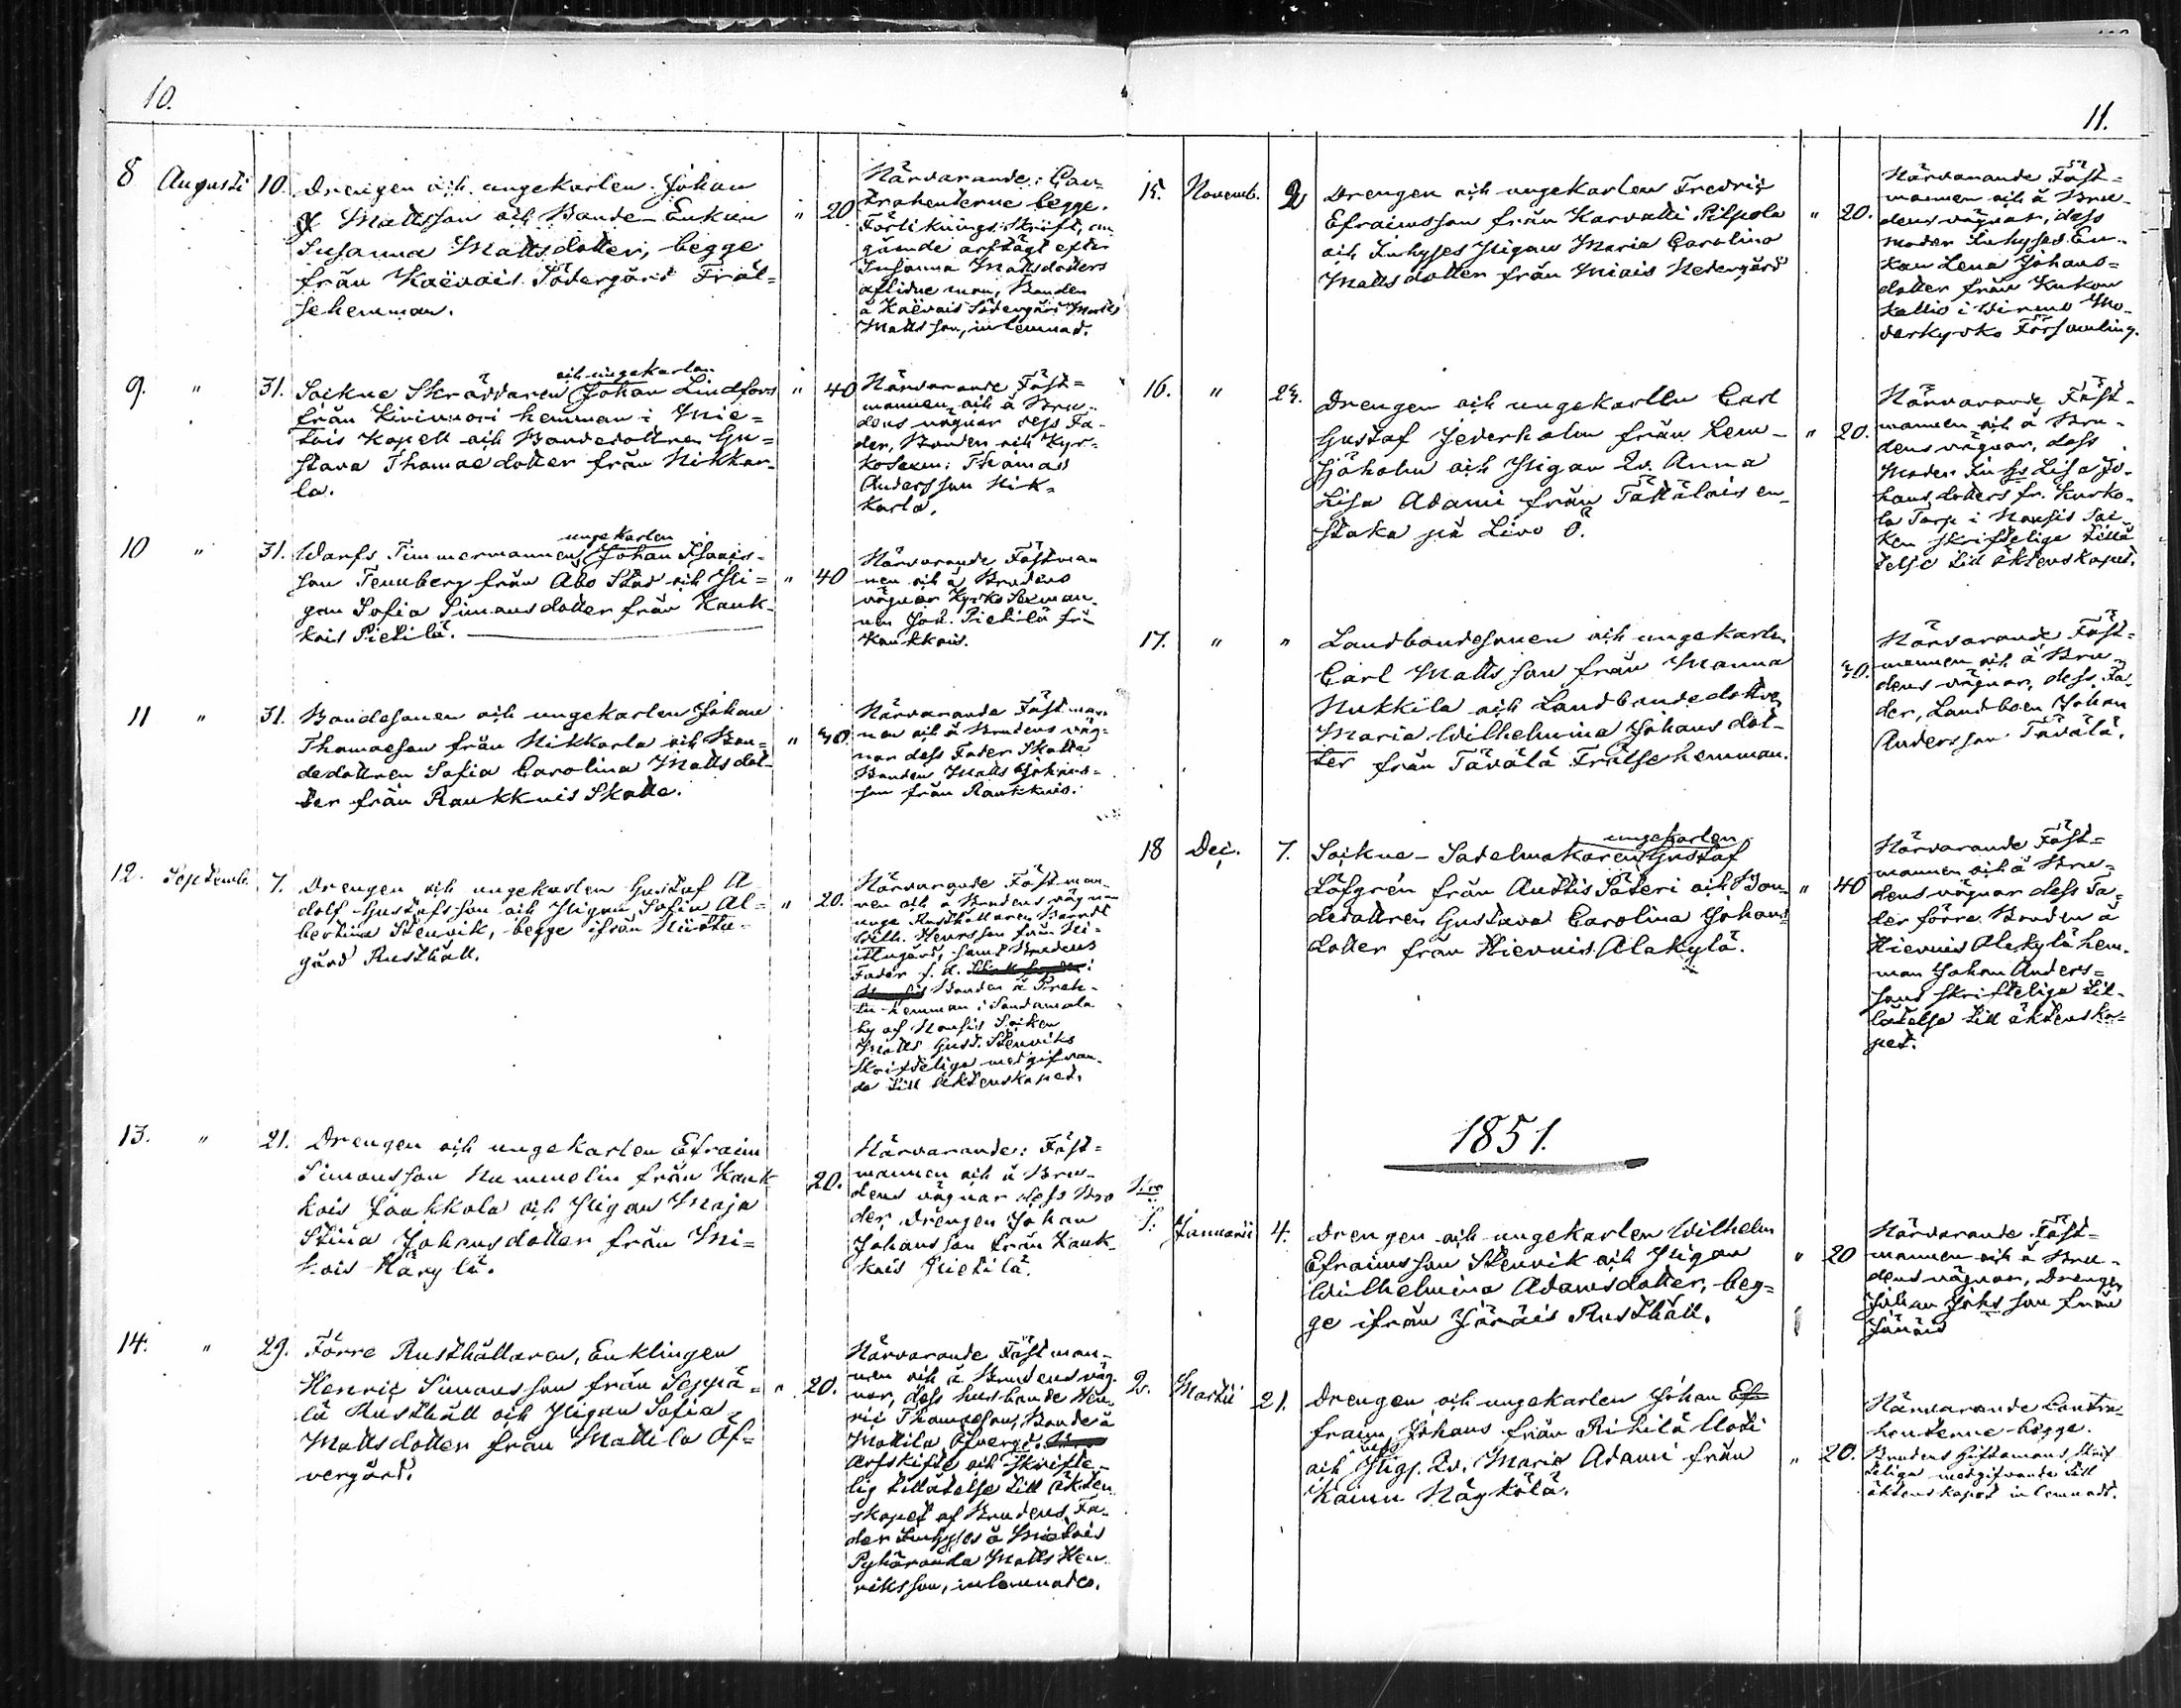 10.
8 Augusti 10. Drengen och ungekarlen Johan
Mattsson och Bonde-Enkan " 20
Susanna Mattsdotter, begge
från Kaëvois Södergård Fräl=
sehemman.
Närvarande: Con=
trahenterne begge.
Förliknings Skrift, an
gående arfsägt efter
Susanna Mattsdotters
aflidne man, Bonden
å Kaëvois Södergård Matts
Mattsson, inlemnad.
9. " 31. Sockne Skräddaren och ungekarlen Johan Lindfors " 40
från Kirivuori hemman i Mie=
tois Kapell och Bondedottren Gu=
stava Thomaedotter från Nikkar-
la.
Närvarande Fäst=
mannen och å Bru-
dens vägnar dess Fa-
der, Bonden och Kyr-
kosexm: Thomas
Andersson Nik-
karla.
10 " 31. Warfs Timmermannen ungekarlen Johan Isaks-
son Tennberg från Åbo Stad och Pi= " 40
gan Sofia Simonsdotter från Kauk-
kois Pietilä.
Närvarande Fästman
nen och å Brudens
vägnar Kyrko Sexman-
nen Joh. Pietilä från
Kaukkois.
11 " 31. Bondesonen och ungekarlen Johan
Thomaeson från Nikkarla och Bon= " 40.
dedottren Sofia Carolina Mattsdot-
ter från Raukkuis Skatte.
Närvarande Fästman
nen och å Brudens väg-
nar dess Fader Skatte
Bonden Matts Johans-
son från Raukkuis.
12. Septemb. 7. Drengen och ungekarlen Gustaf A
dolf Gustafsson och Pigan Sofia Al= " 20.
bertina Stenvik, begge ifrån
gård Rusthåll.
Närvarande Fästman-
nen och å Brudens vägnar
unge Rusthållaren Berndt
Wilh. Henrsson från Ni-
samt Brudens
Fader f. d.
Bonden å
hemman i Sandamala
by af Nousis Socken
Matts Gust. Stenviks
Skriftelige medgifvan-
de till äktenskapet.
13. " 21. Drengen och ungekarlen Efraim
Simonsson Nummelin från Kauk 20.
kois Jaakkola och Pigan Maja
Stina Johansdotter från Mi=
kois Käryla.
Närvarande: Fäst=
mannen och å Bru-
dens vägnar dess Bro
der, Drengen Johan
Johansson från Kauk-
kois Pietilä.
14. " 29. Förre Rusthållaren, Enklingen
Henric Simonsson från Seppä= " 20.
lä Rusthåll och Pigan Sofia
Mattsdotter från Mattila Öf=
vergård.
Närvarande Fästman-
nen och å Brudens väg-
nar, dess husbonde Hen-
ric Thomaeson, Bonde å
Mattila Öfvergd.
Arfskifte och Skrifte-
lig tillåtelse till äkten
skapet af Brudens Fa-
der Inhyses å Mietois
Pyhäranda Matts Hen-
riksson, inlemnades.
11.
15. Novemb. 2 Drengen och ungekarlen Fredric
Efraimsson från Karvatti Pilpola " 20.
och Inhyses Pigan Maria Carolina
Mattsdotter från Miais Nedergård
Närvarande Fäst=
mannen och å Bru-
dens vägnar, dess
moder Inhyses En-
kan Lena Johans=
dotter från Kukon
kallio i Wirmo Mo-
derkyrko Församling.
16. " 24. Drengen och ungekarlen Carl
Gustaf Jederholm från Lem- " 20.
sjöholm och Pigan Lv. Anna
Lisa Adami från Tästälais en-
staka på Livo Ö.
Närvarande Fäst-
mannen och å Bru-
dens vägnar, dess
Moder Inhs Lisa Jo-
hansdotters fr. Kurko-
la Torp i Nousis Soc-
ken skriftelige tillå
telse till äktenskapet.
17. " " Landbondesonen och ungekarlen
Carl Mattsson från Manna 40.
Nukkila och Landbondedottren
Maria Wilhelmina Johansdot-
ter från Tävälä Frälsehemman.
Närvarande Fäst=
mannen och å Bru-
dens vägnar, dess Fa-
der, Landboen Johan
Andersson Tävälä.
18 Dec. 7. Sockne-Sadelmakaren ungekarlen Gustaf
Löfgrén från Autis Säteri och Bon- " 40
dedottren Gustava Carolina Johans-
dotter från Hiervois Alakylä.
Närvarande Fäst=
mannen och å Bru=
dens vägnar dess Fa-
der förre Bonden å
Hiervois Alakylä hem-
man Johan Anders=
sons skriftelige till-
låtelse till äktenska=
pet.
1851.
1. Januarii 4. Drengen och ungekarlen Wilhelm
Efraimsson Stenvik och Pigan " 20
Wilhelmina Adamsdotter, beg=
ge ifrån Järäis Rusthåll.
Närvarande Fäst=
mannen och å Bru-
dens vägnar, Drengen
Johan Johsson från
Järäis
2. Martii 21. Drengen och ungekarlen Johan Ef
fraim Johans från Rihilä Uoti
och Pigs. Lv. Maria Adami från " 20.
Kainu Näykölä.
Närvarande Contra-
henterne begge.
Brudens Giftomans Skrif
telige medgifvande till
äktenskapet inlemnadt.